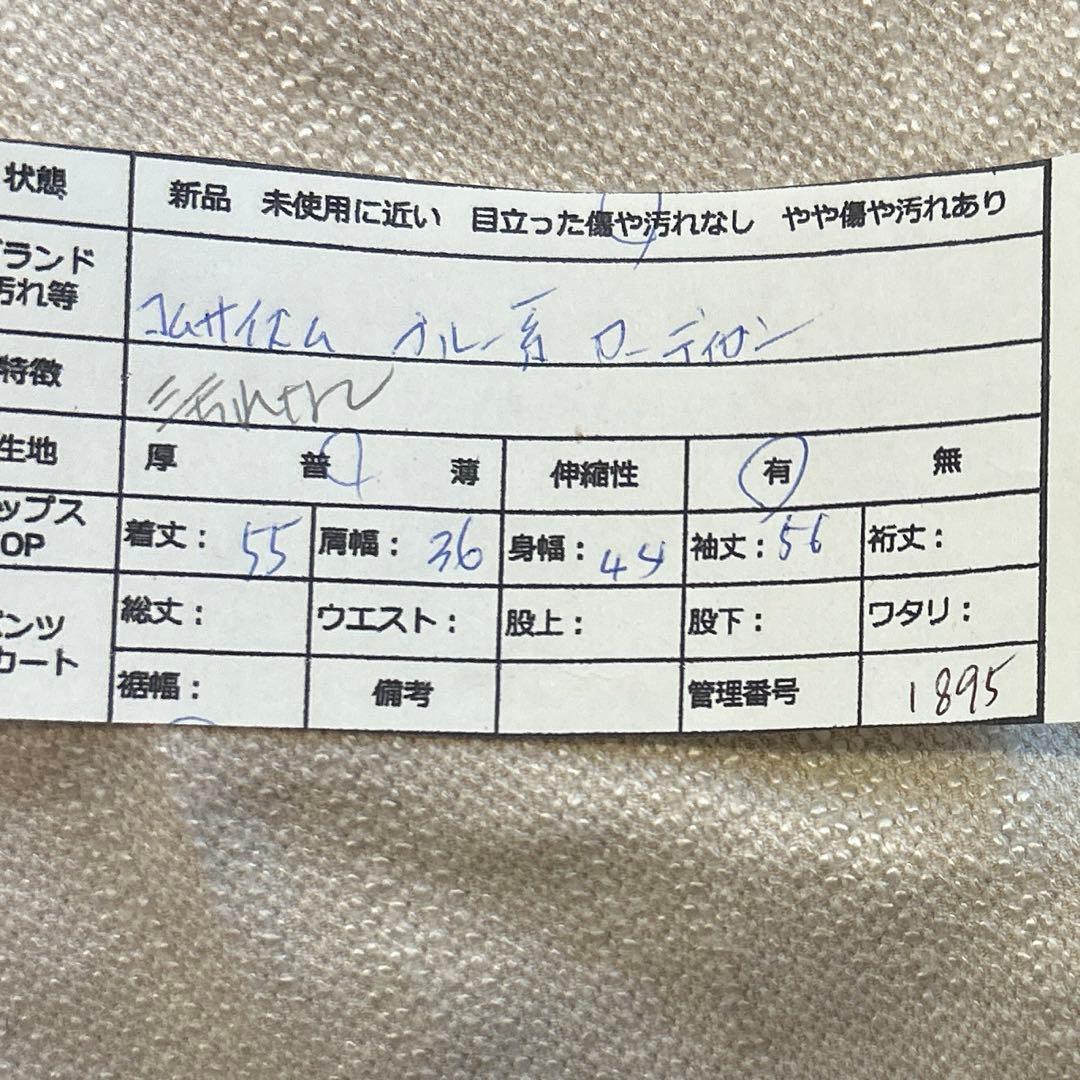 状態 新品 未使用に近い 目立った傷や汚れなし やや傷や汚れあり
ランド
汚れ等 コムサイズム ブルー系 カーディガン
特徴
生地 厚 普 薄 伸縮性 有 無
ップス
OP 着丈： 55 肩幅： 36 身幅： 44 袖丈： 56 裄丈：
ンツ
カート 総丈： ウエスト： 股上： 股下： ワタリ：
裾幅： 備考 管理番号 1895